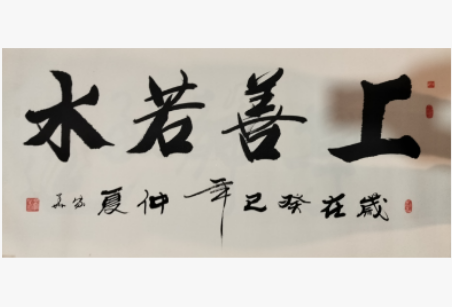 上善若水
歲在癸巳年仲夏